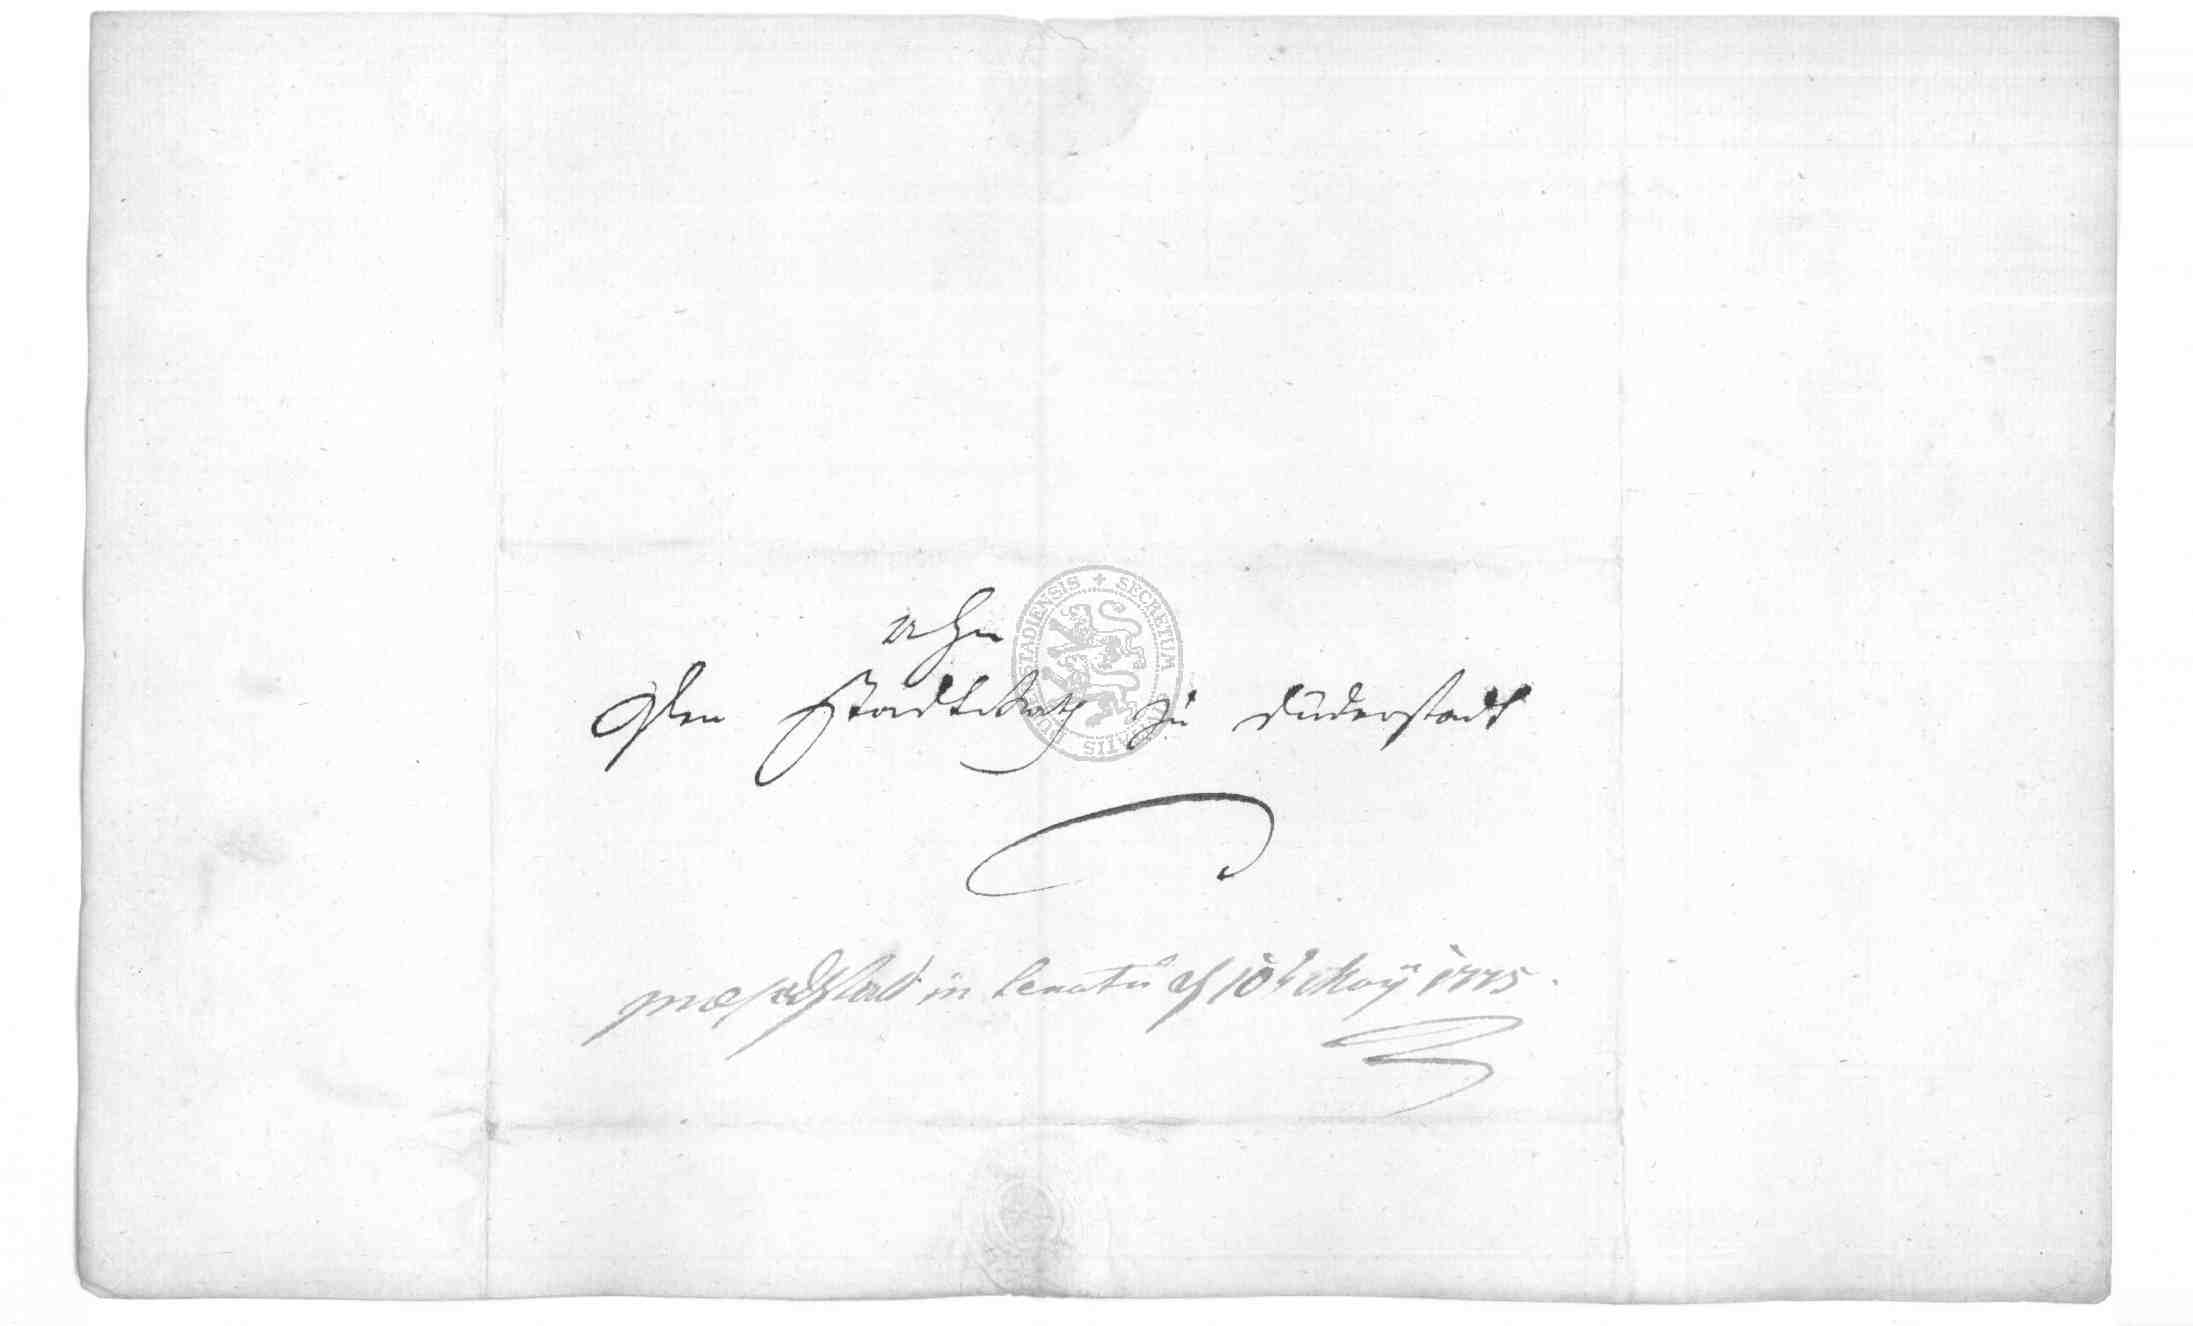 Ahn
Den Stadt Rath zu Duderstadt
præsentat in Senatu d 10t May 1775.
SECRETUM STADIENSIS